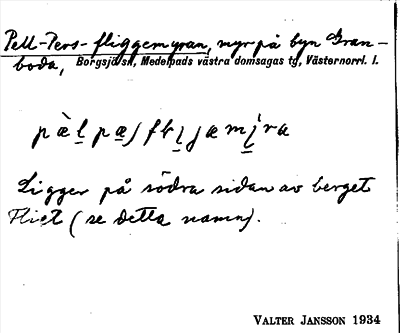 Pell-Pers-fliggemyran, myr på byn Gran-
boda, Borgsjö sn, Medelpads västra domsagas tg, Västernorrl. l.
Ligger på södra sidan av berget
Fliet (se detta namn).
VALTER JANSSON 1934